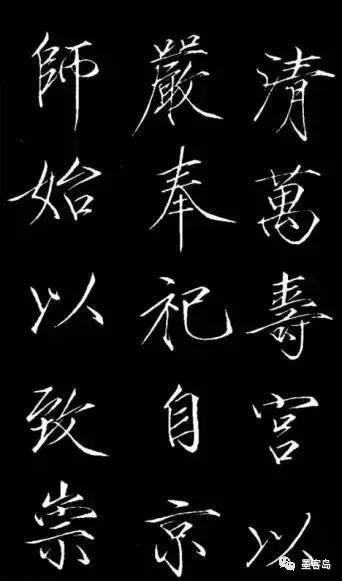 清萬壽宮以
嚴奉祀自京
師始以致崇
墨客岛